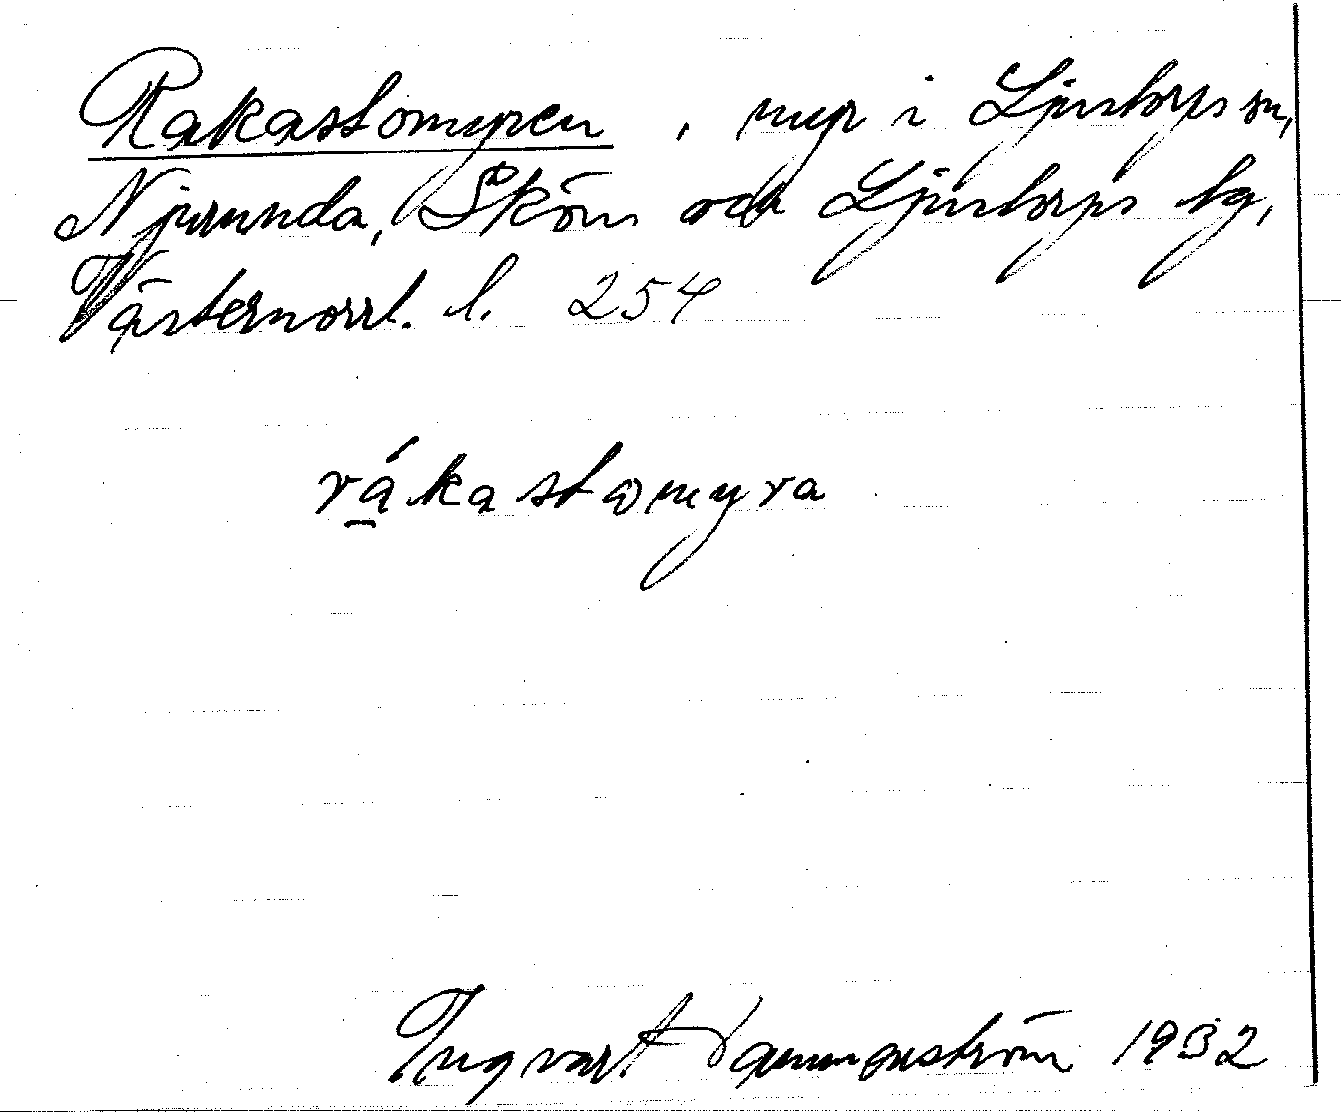 Rakastomyren, myr i Ljustorps sn,
Njurunda, Sköns och Ljustorps tg,
Västernorrl. l. 254
rákastomyra
Ingvart 1932